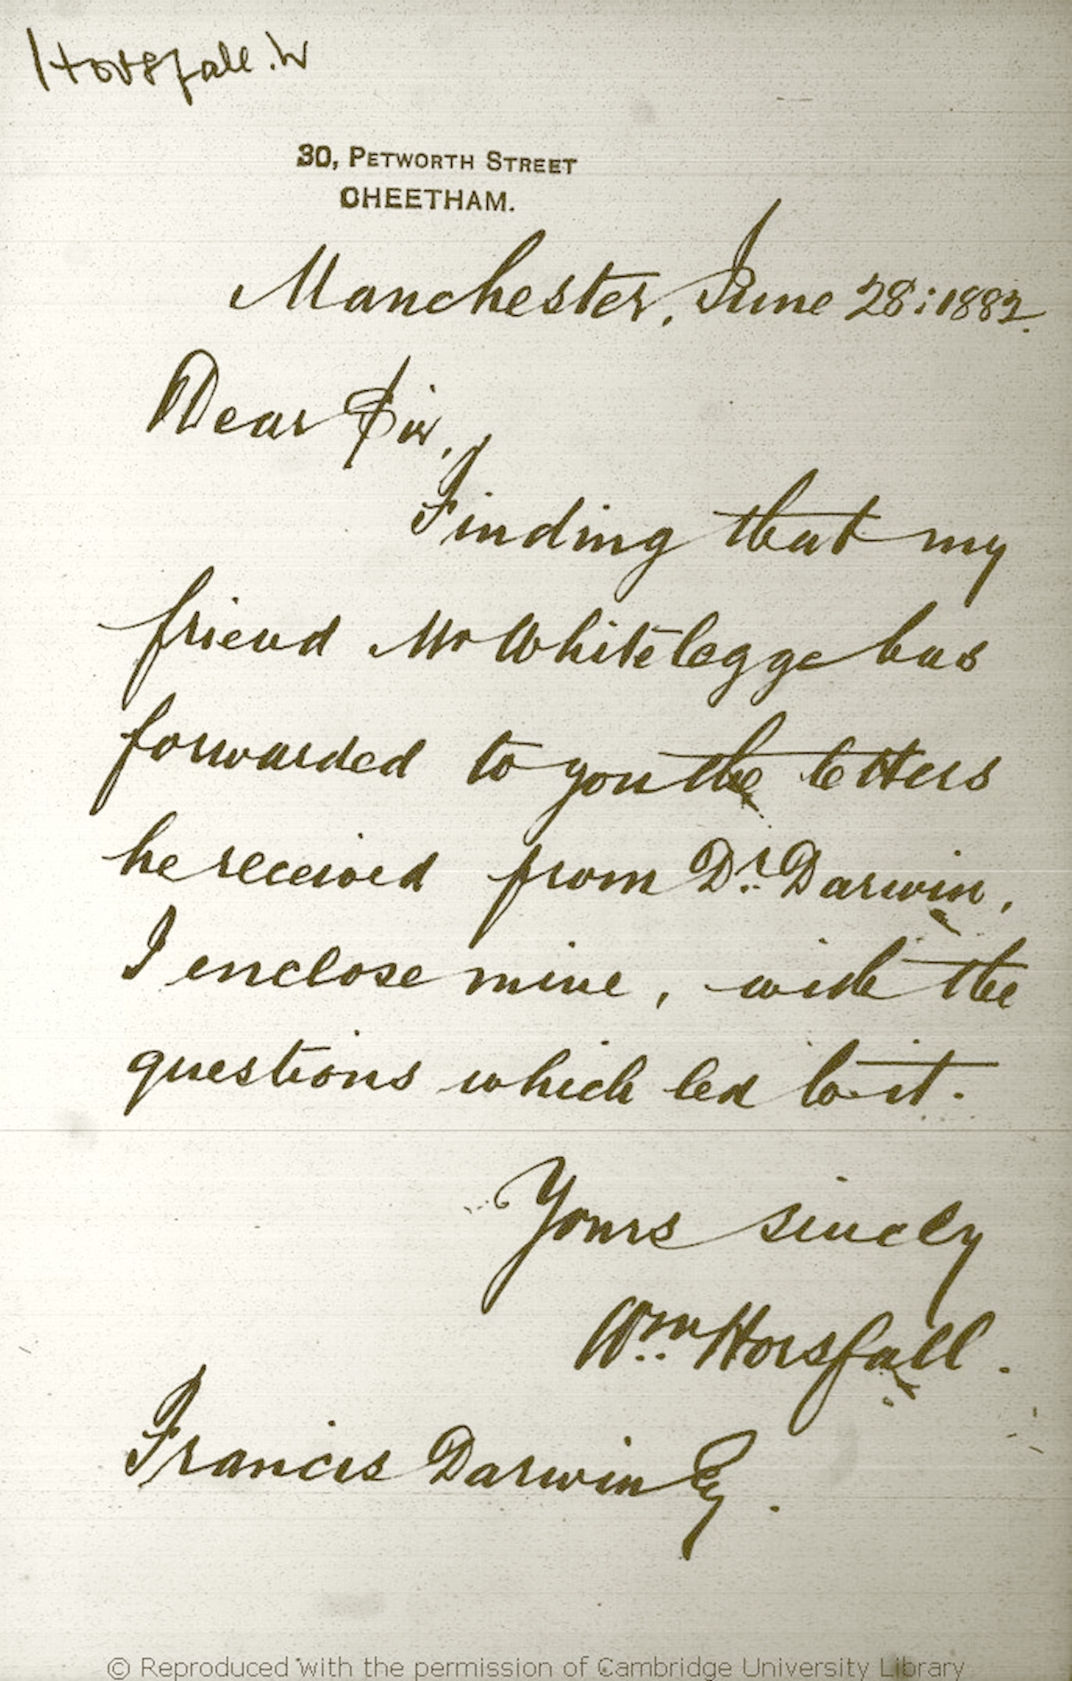 Horsfall. W
30, PETWORTH STREET
CHEETHAM.
Manchester, June 28: 1882.
Dear Sir,
Finding that my
friend Mr Whitelegge has
forwarded to you the letters
he received from Dr. Darwin,
I enclose mine, with the
questions which led to it.
Yours sincely
Wm Horsfall.
Francis Darwin Esq.
© Reproduced with the permission of Cambridge University Library